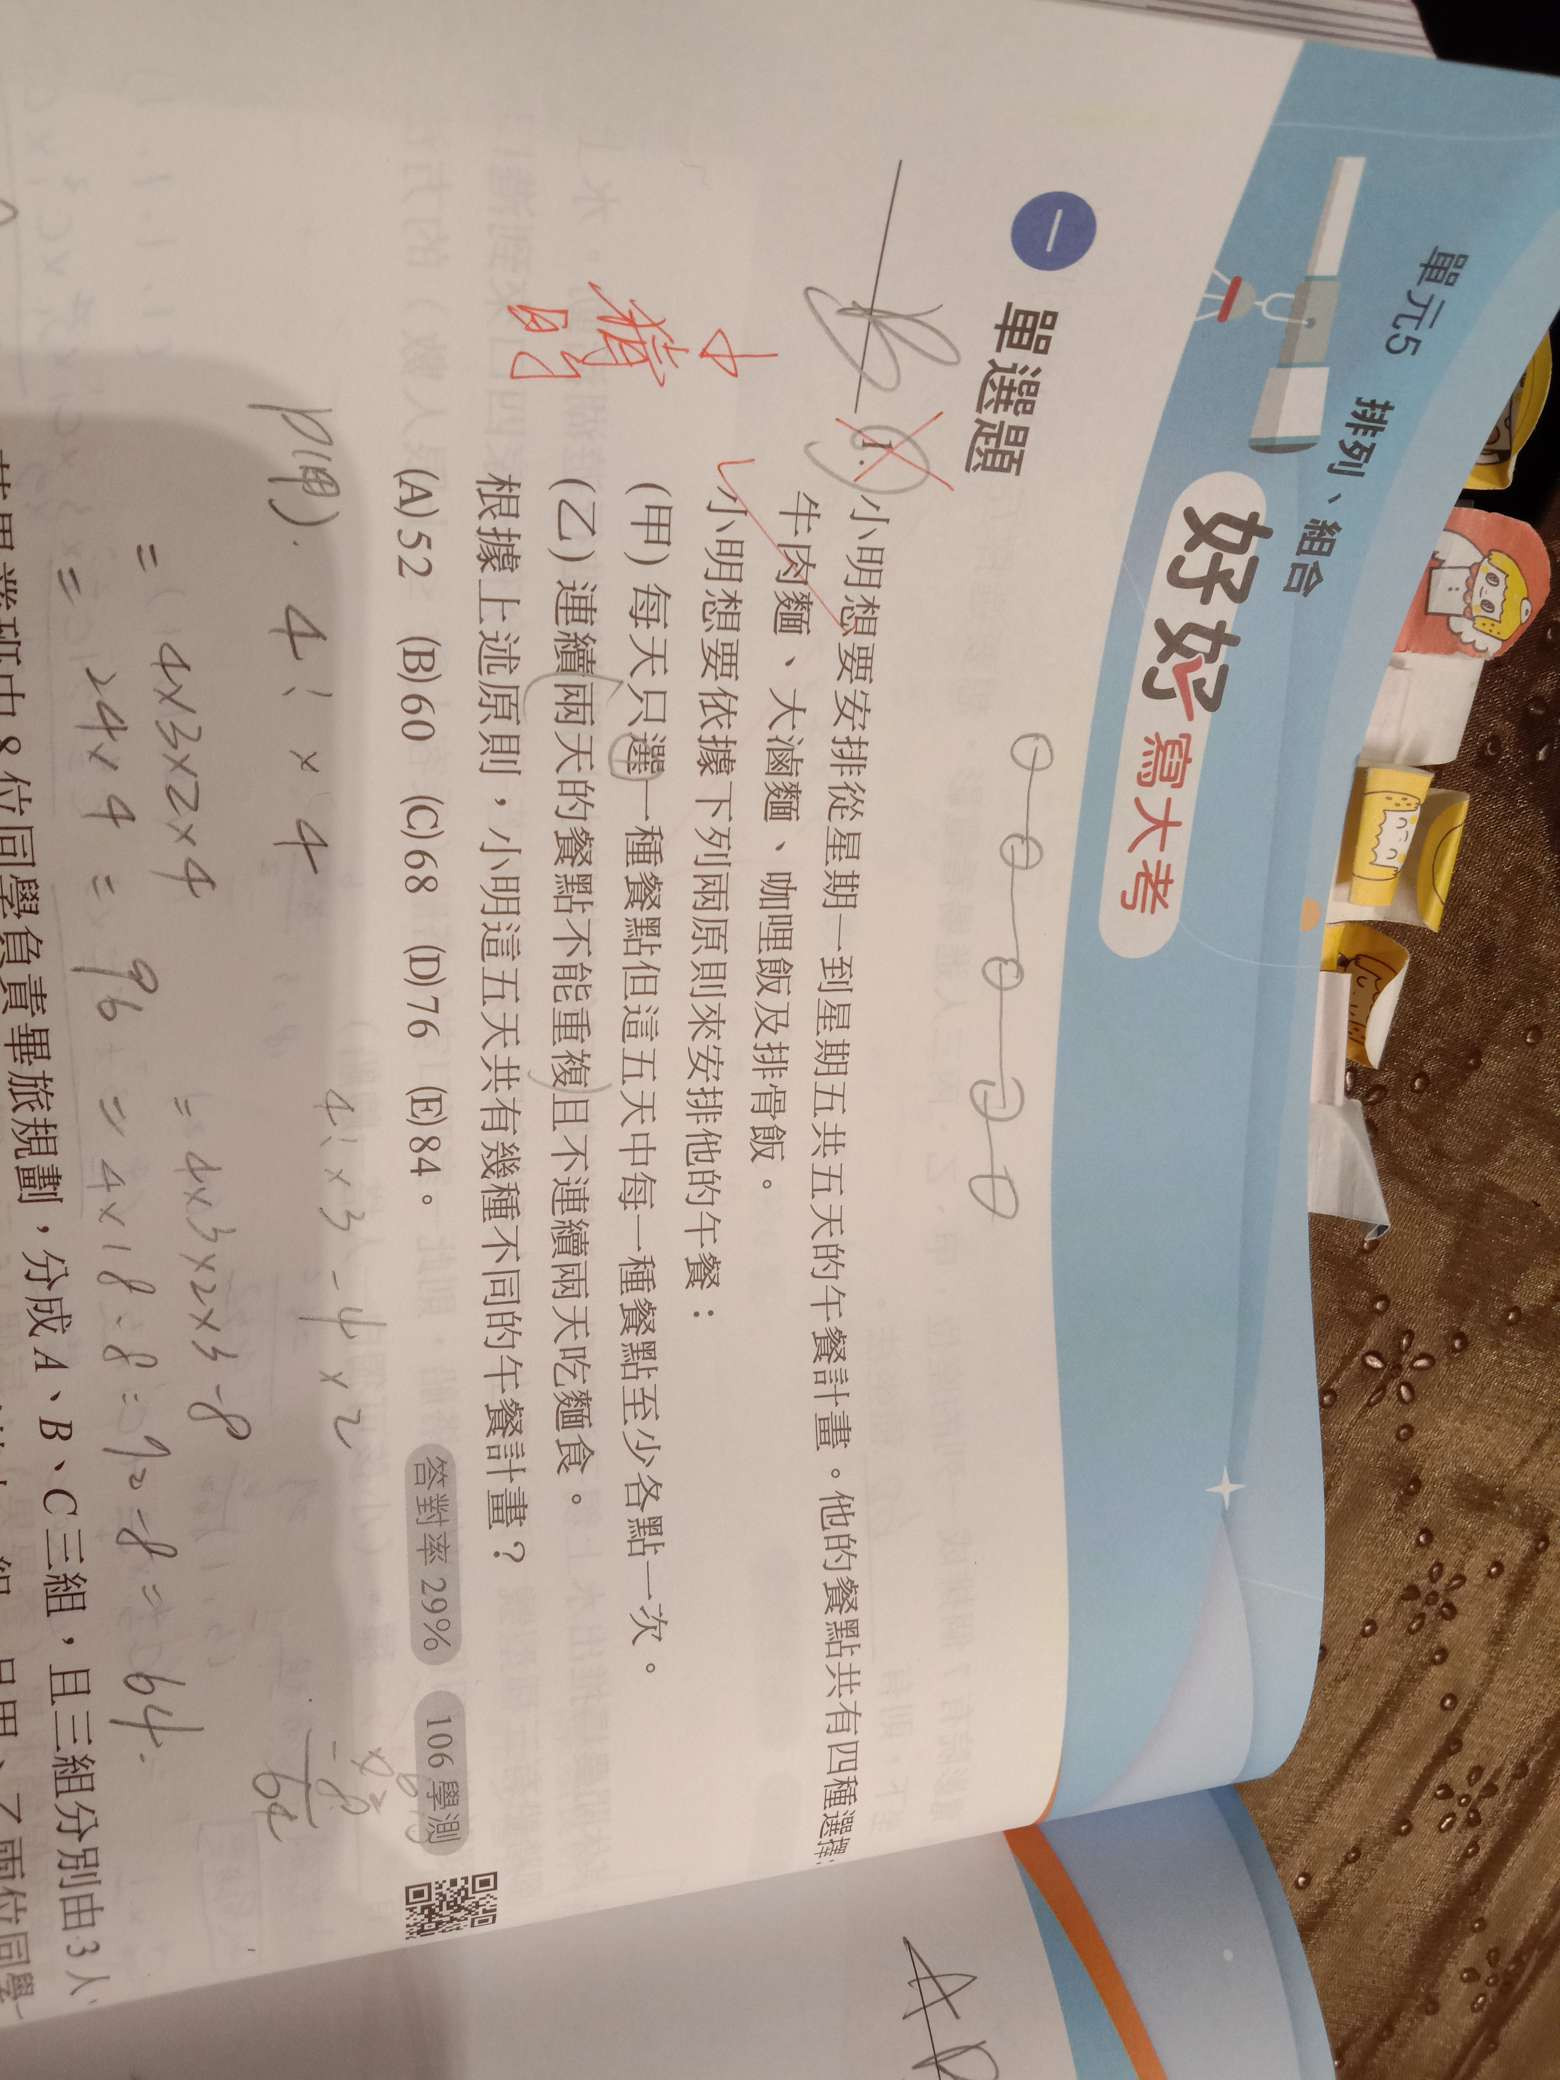 單元5 排列、組合
好好寫大考
一 單選題
1. 小明想要安排從星期一到星期五共五天的午餐計畫。他的餐點共有四種選擇:
牛肉麵、大滷麵、咖哩飯及排骨飯。
小明想要依據下列兩原則來安排他的午餐:
(甲) 每天只選一種餐點但這五天中每一種餐點至少各點一次。
(乙) 連續兩天的餐點不能重複且不連續兩天吃麵食。
根據上述原則,小明這五天共有幾種不同的午餐計畫?
(A)52 (B)60 (C)68 (D)76 (E)84。
答對率 29% 106 學測
B
4! × 4
4! × 3 - 4 × 2
= 4×3×2×4
= 4×3×2×3-8
= 24×4 = 96
= 4×18-8
72-8=64
-8
64
分成 A、B、C 三組,且三組分別由 3 人
8 位同學負責畢旅規劃,